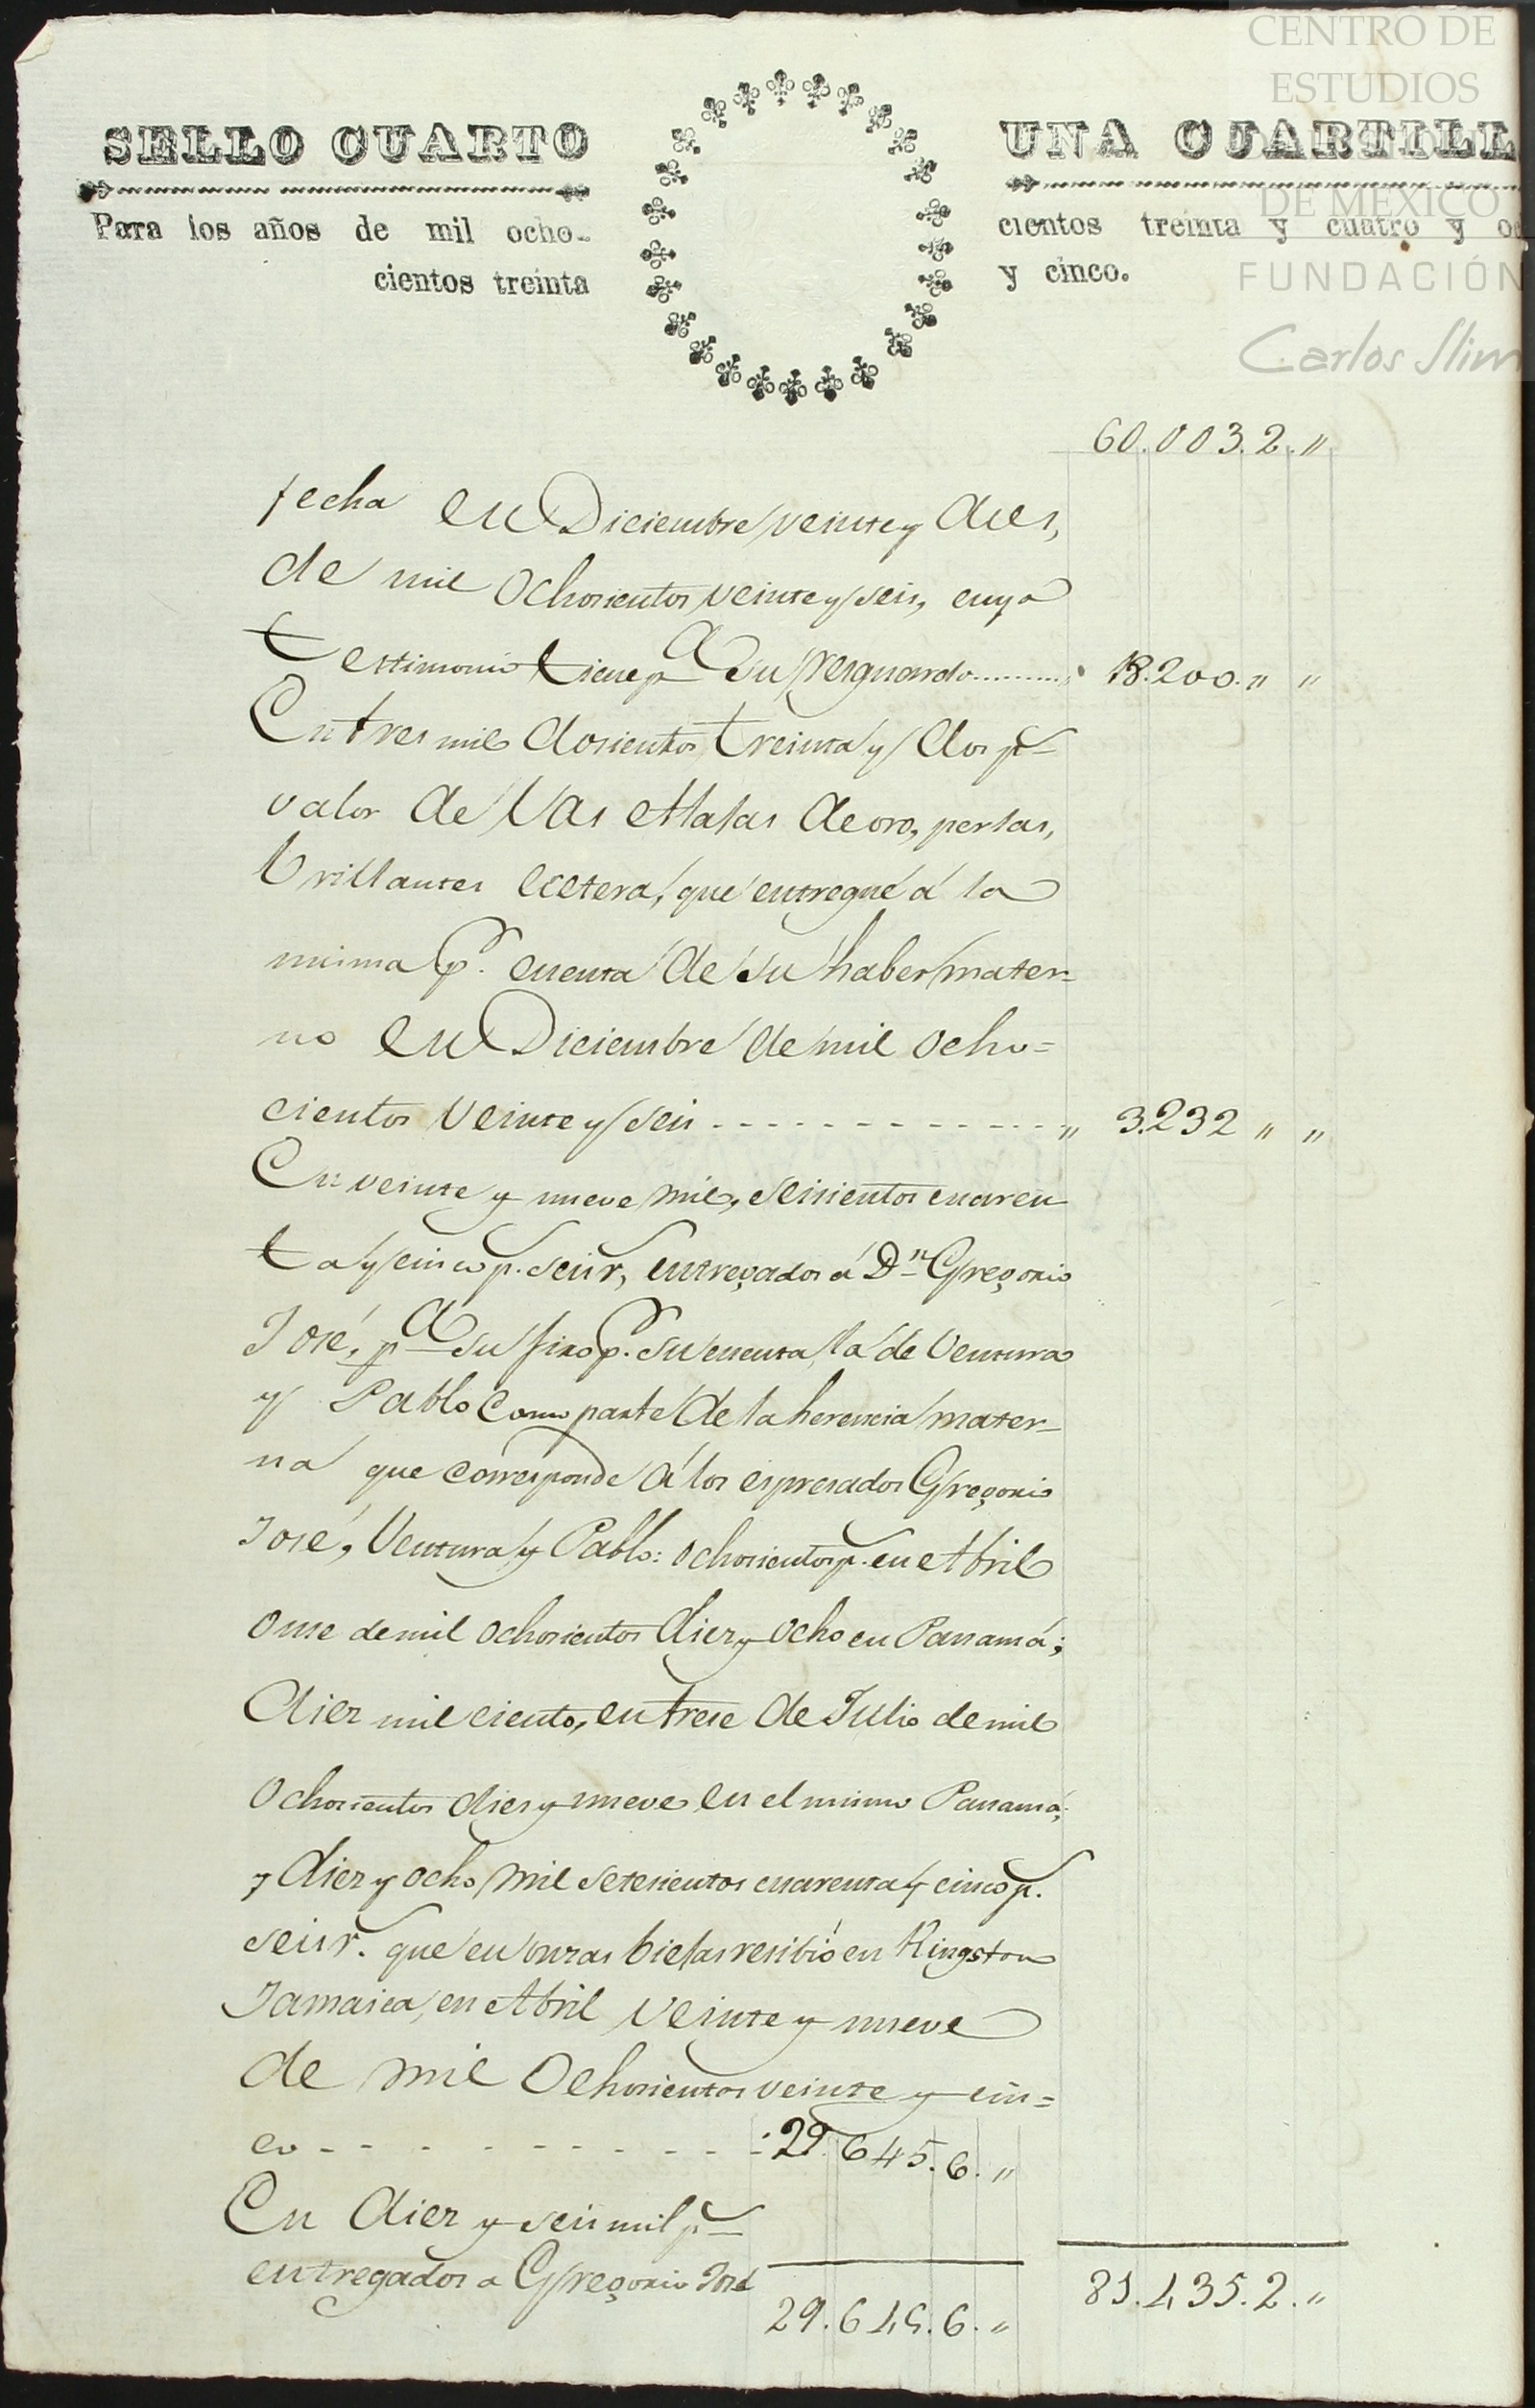 CENTRO DE
ESTUDIOS
DE MÉXICO
FUNDACIÓN
Carlos Slim
SELLO CUARTO
UNA CUARTILL
Para los años de mil ocho-
cientos treinta
cientos treinta y cuatro y oc
y cinco.
60.003.2.〃
fecha en Diciembre veinte y dies,
de mil ochosientos veinte y seis, cuyo
testimonio tiene pa. su resguardo.......... 18.200.〃 〃
En tres mil dosientos treinta y dos ps.
valor de las Alajas de oro, perlas,
brillantes ecetera, que entregué á la
misma pr. cuenta de su haber mater=
no en Diciembre de mil ocho=
cientos veinte y seis - - - - - - - - - - - - 〃 3.232 〃 〃
En veinte y nueve mil, seisientos cuaren
ta y cinco p. seis r, entregados á Dn. Gregorio
José, pa. su jiro pr. su cuenta, la de Ventura
y Pablo como parte de la herencia mater-
na que corresponde á los espresados Gregorio
José, Ventura y Pablo: ochosientos p. en Abril
onse de mil ochosientos diez y ocho en Panamá;
diez mil ciento, en trese de Julio de mil
ochosientos dies y nueve en el mismo Panamá;
y diez y ocho mil setesientos cuarenta y cinco p.
seis r. que en onzas biejas resibió en Kingston
Jamaica, en Abril veinte y nueve
de mil ochosientos veinte y cin=
co - - - - - - - - - : 29.645.6.〃
En diez y seis mil ps.
entregados a Gregorio José
29.645.6.〃 81.435.2.〃